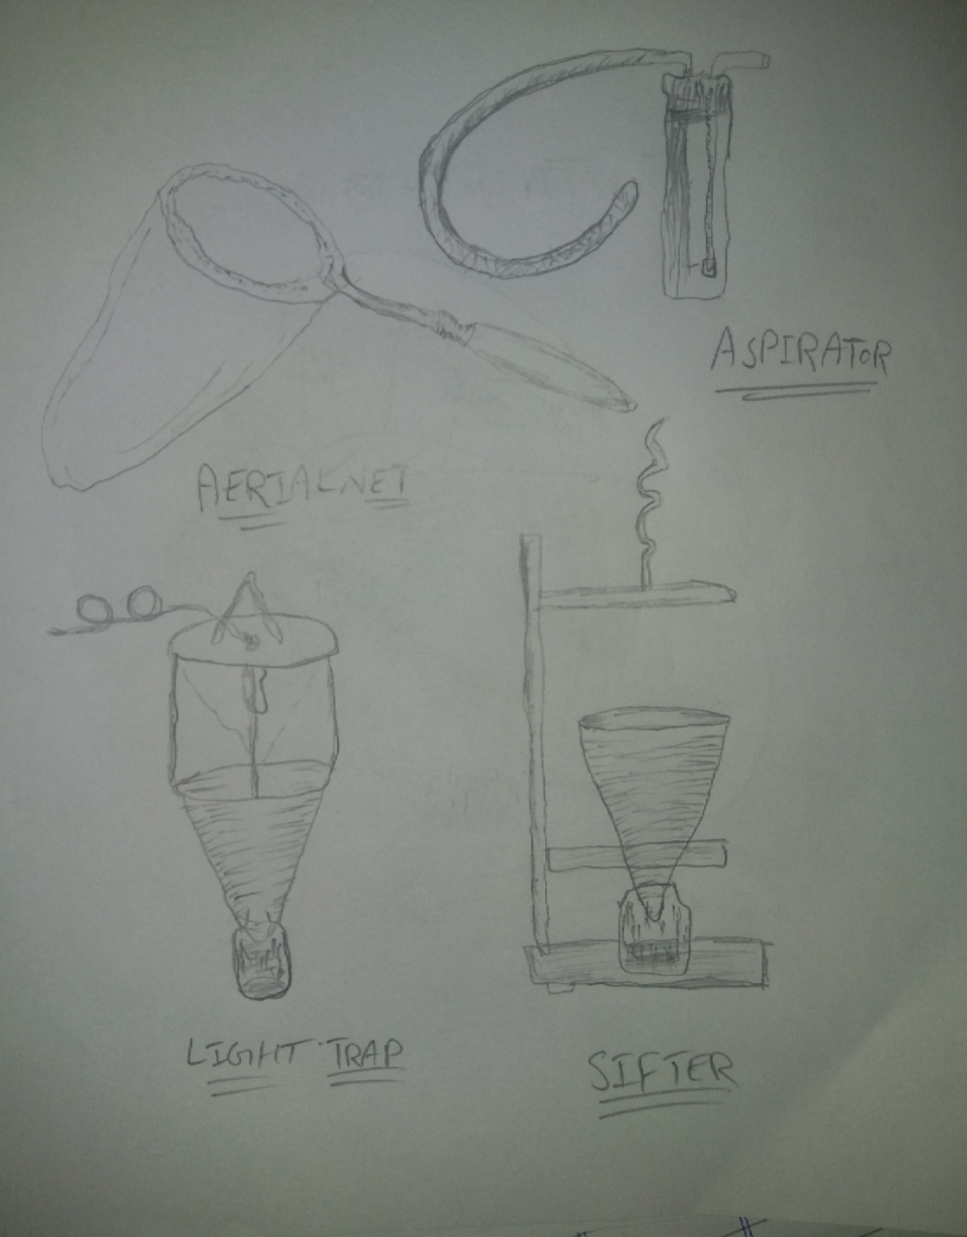 ASPIRATOR
AERIAL NET
LIGHT TRAP
SIFTER